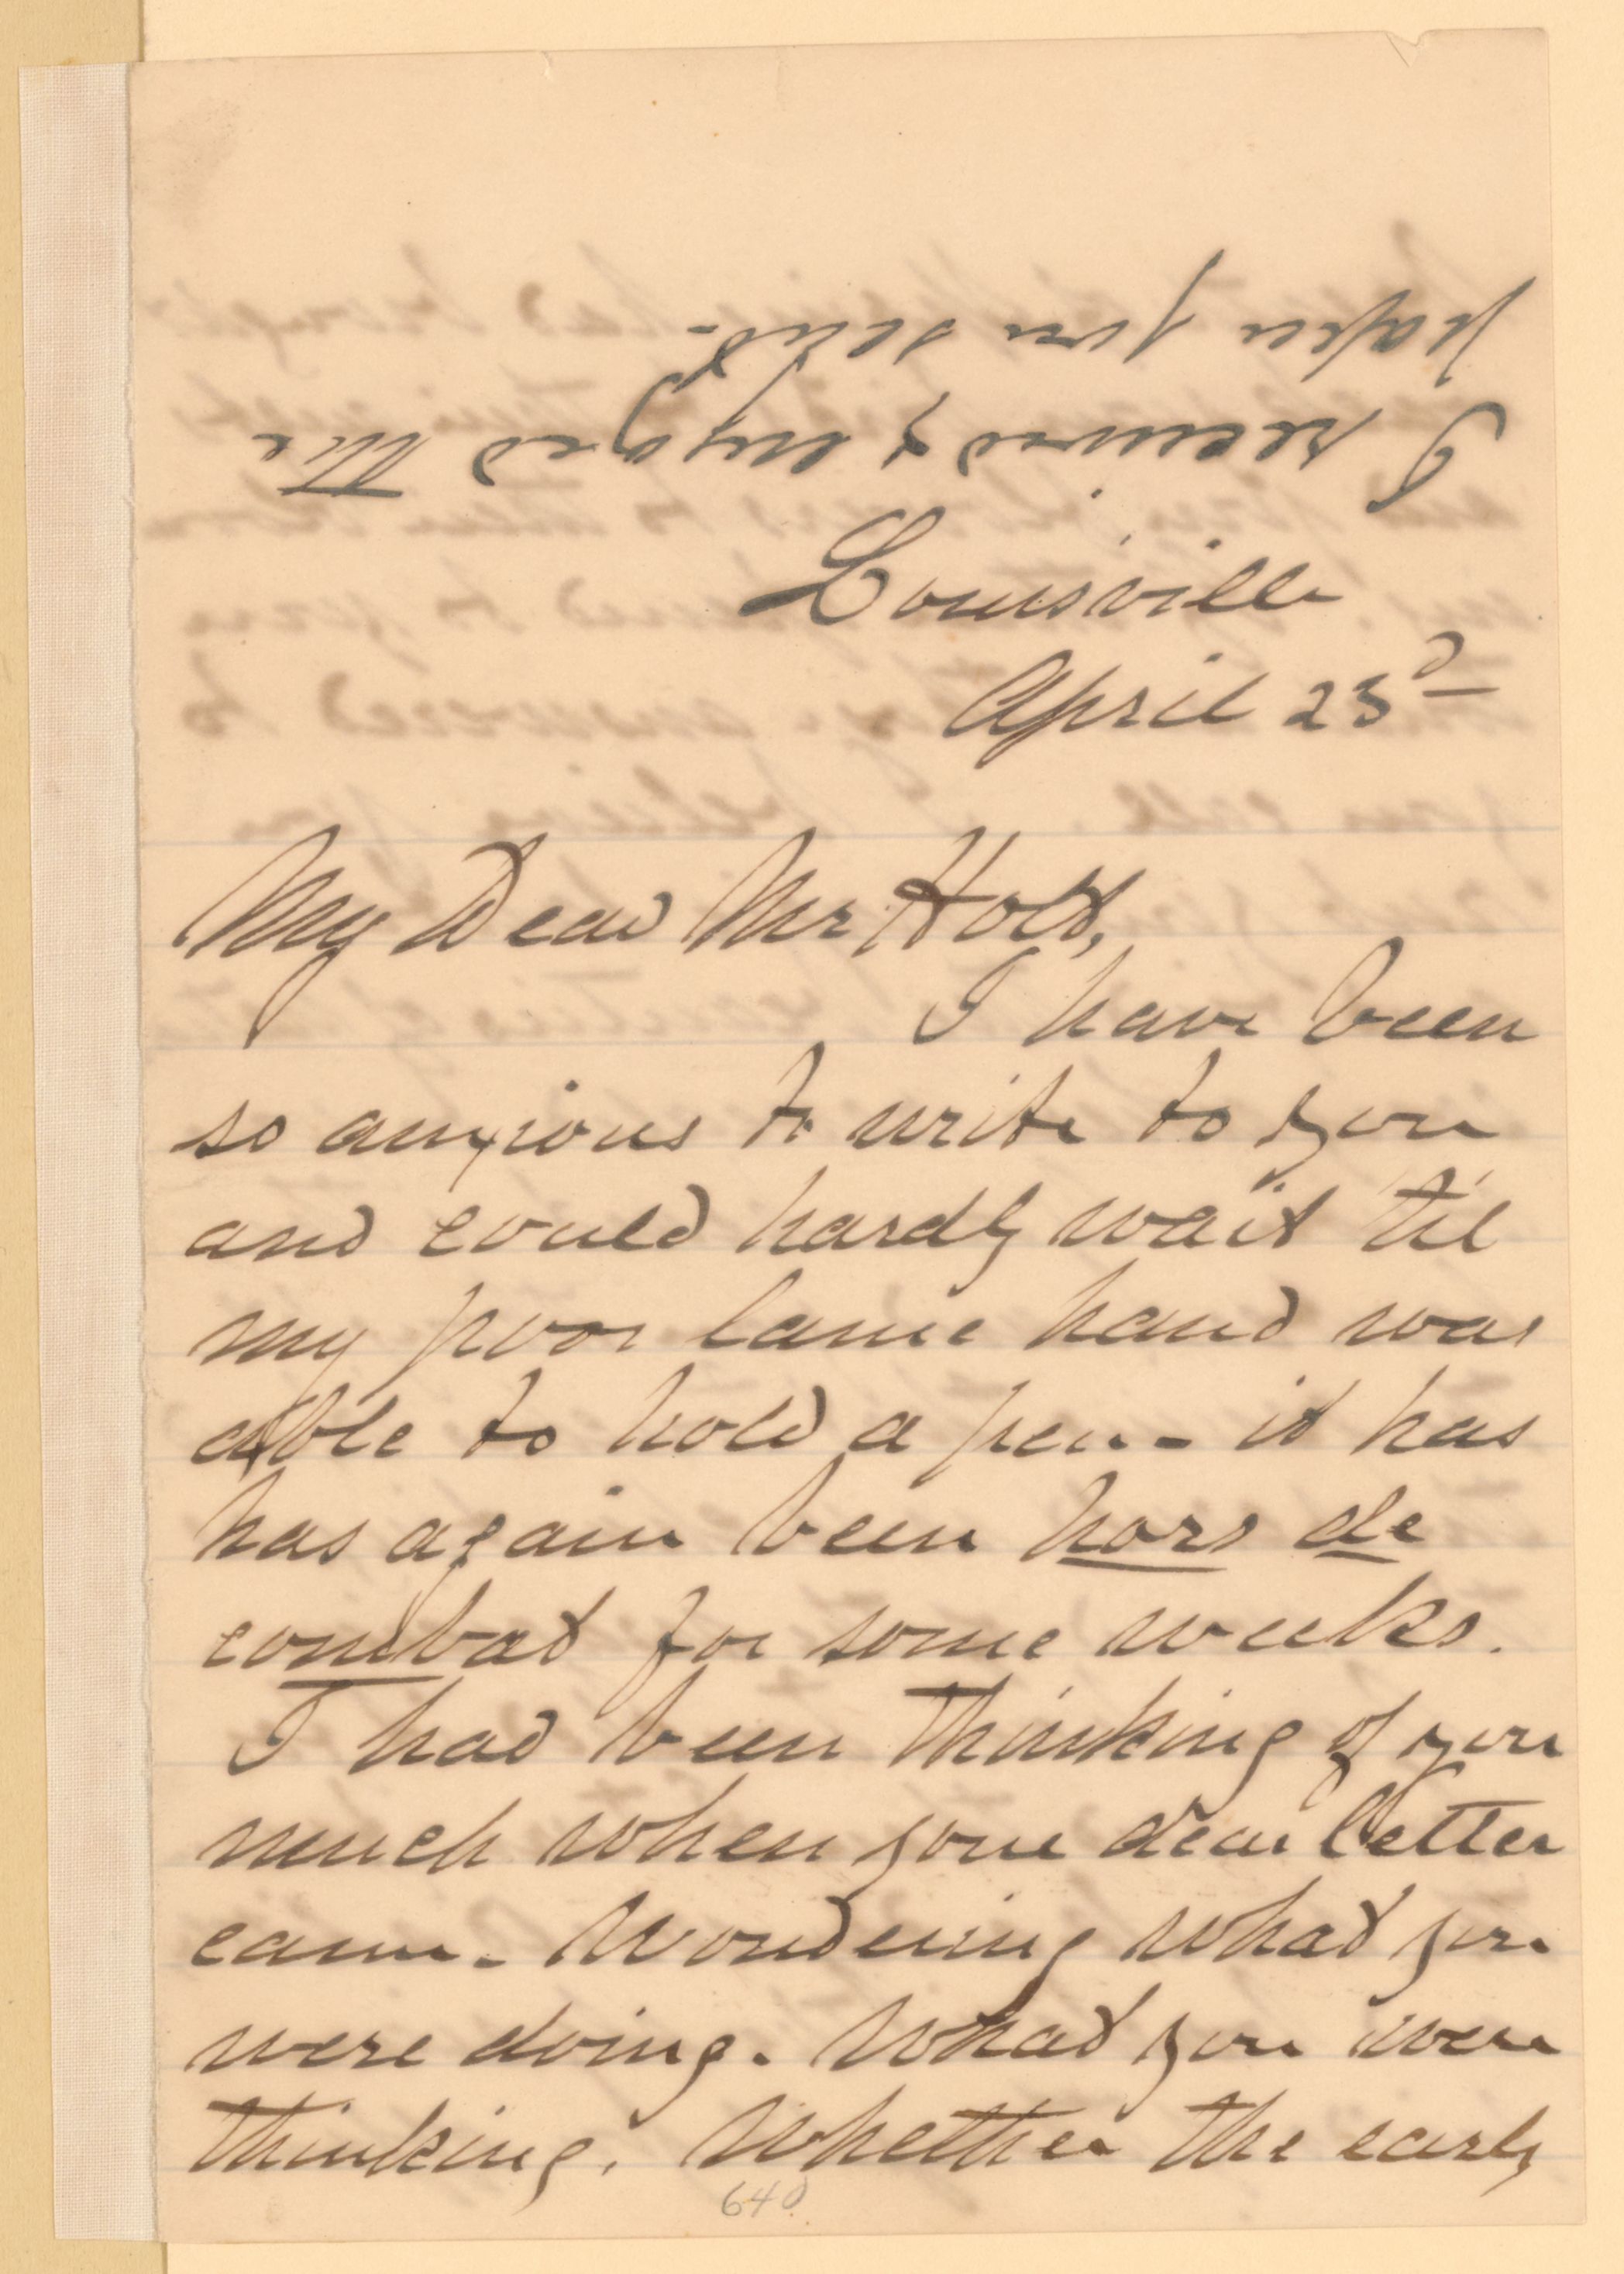 I received & enjoyed the
paper you sent.
Louisville
April 23d
My Dear Mr Holt,
I have been
so anxious to write to you
and could hardly wait 'til
my poor lame hand was
able to hold a pen - it has
has again been hors de
combat for some weeks.
I had been thinking of you
much when your dear letter
came - Wondering what you
were doing. What you were
thinking. Whether the early
640